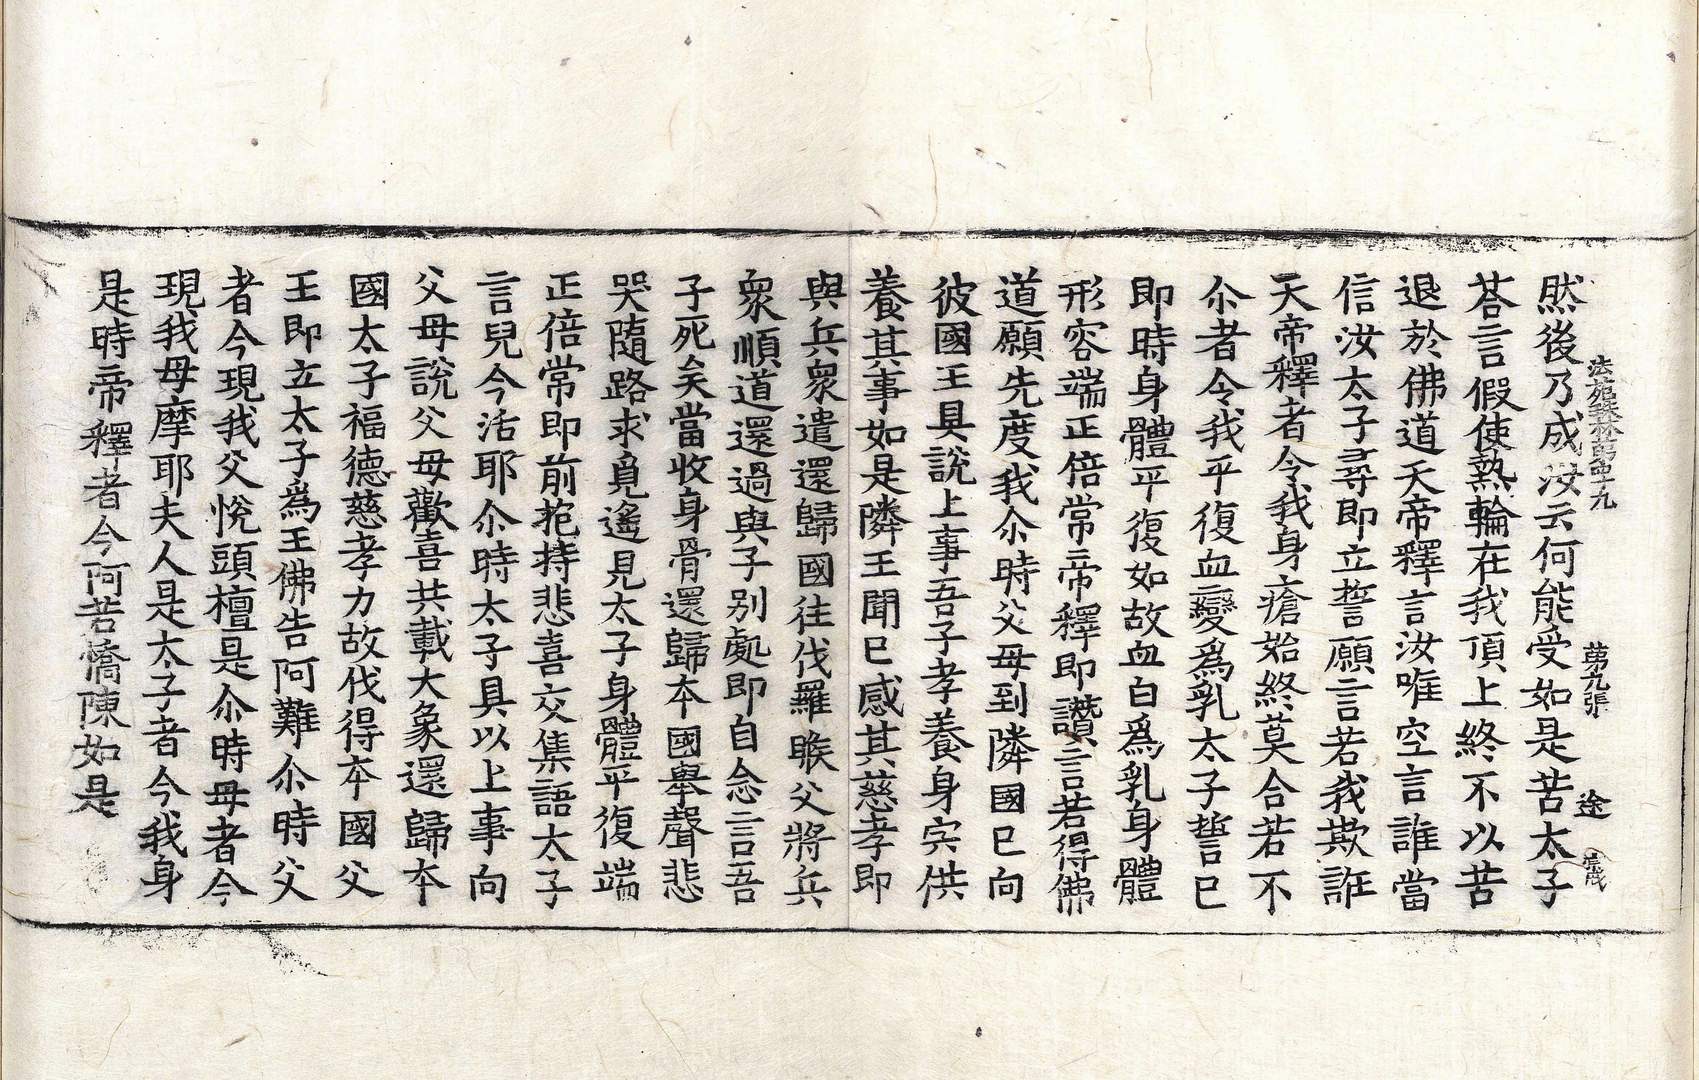 法苑珠林第四十九 第九張 途
然後乃成汝云何能受如是苦太子
荅言假使熱輪在我頂上終不以苦
退於佛道天帝釋言汝唯空言誰當
信汝太子尋即立誓願言若我欺誑
天帝釋者令我身瘡始終莫合若不
尒者令我平復血變爲乳太子誓已
即時身體平復如故血白爲乳身體
形容端正倍常帝釋即讚言若得佛
道願先度我尒時父母到隣國已向
彼國王具說上事吾子孝養身宍供
養其事如是隣王聞已感其慈孝即
與兵衆遣還歸國往伐羅睺父將兵
衆順道還過與子別處即自念言吾
子死矣當收身骨還歸本國舉聲悲
哭隨路求覓遙見太子身體平復端
正倍常即前抱持悲喜交集語太子
言兒今活耶尒時太子具以上事向
父母說父母歡喜共載大象還歸本
國太子福德慈孝力故伐得本國父
王即立太子爲王佛告阿難尒時父
者今現我父悅頭檀是尒時母者今
現我母摩耶夫人是太子者今我身
是時帝釋者今阿若憍陳如是